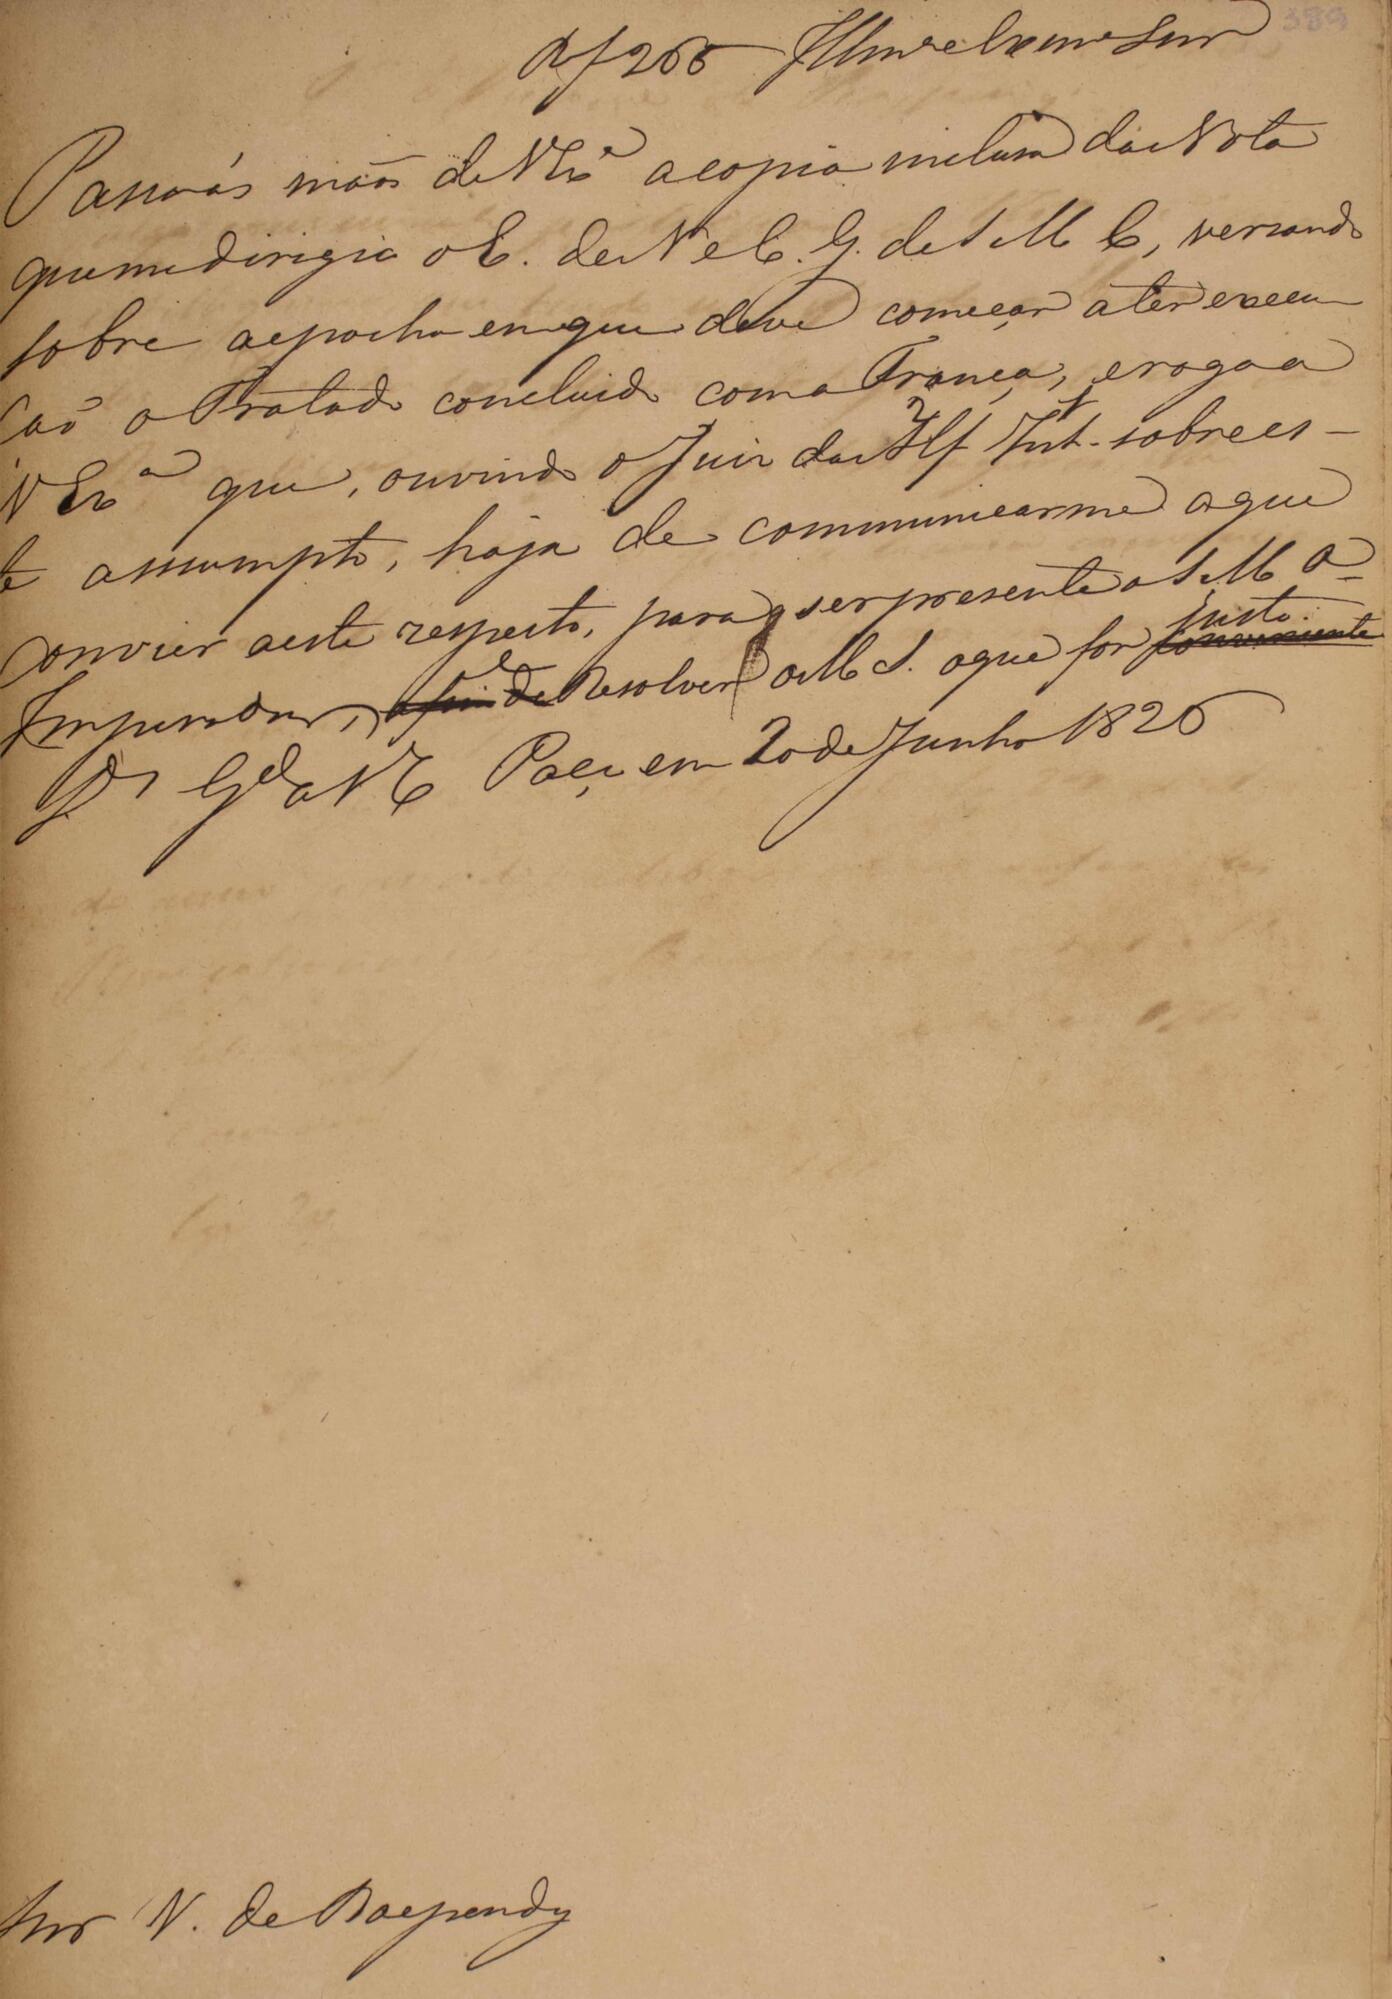 389
Illmo e Exmo Snr
Passo ás mãos de V Exª a copia inclusa da Nota
que me dirigio o E. de N e C. G. de S M C, versando
sobre a epocha em que deve começar a ter execu
ção o Tratado concluido com a França, e rogo a
V Exª que, ouvindo o Juiz da Alf sobre es-
te assumpto, haja de communicar me o que
convier a este respeito, para q ser presente a S. M. O
Imperador, e Resolver o M S. o que for justo.
Ds Gde a V E Paço em 20 de Junho 1826
Snr V. de Baependy